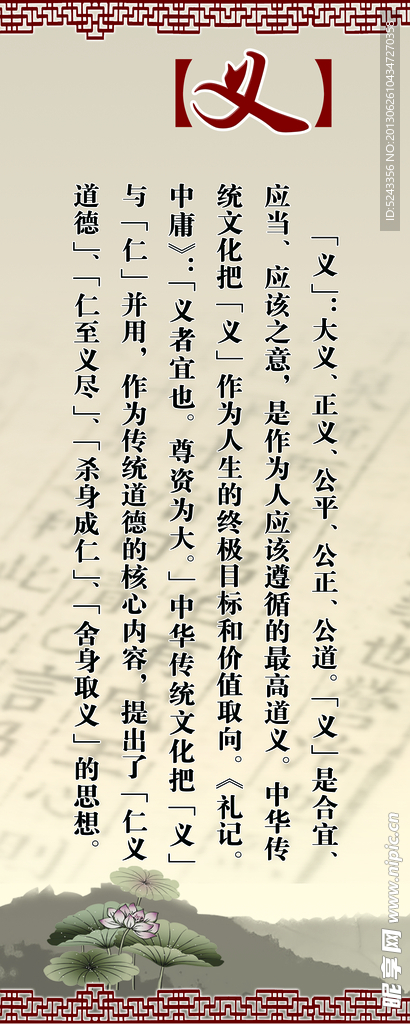 【义】
「义」：大义、正义、公平、公正、公道。「义」是合宜、
应当、应该之意，是作为人应该遵循的最高道义。中华传
统文化把「义」作为人生的终极目标和价值取向。《礼记。
中庸》：「义者宜也。尊资为大。」中华传统文化把「义」
与「仁」并用，作为传统道德的核心内容，提出了「仁义
道德」、「仁至义尽」、「杀身成仁」、「舍身取义」的思想。
ID:5243356 NO:20130626104347270358
昵享网 www.nipic.cn